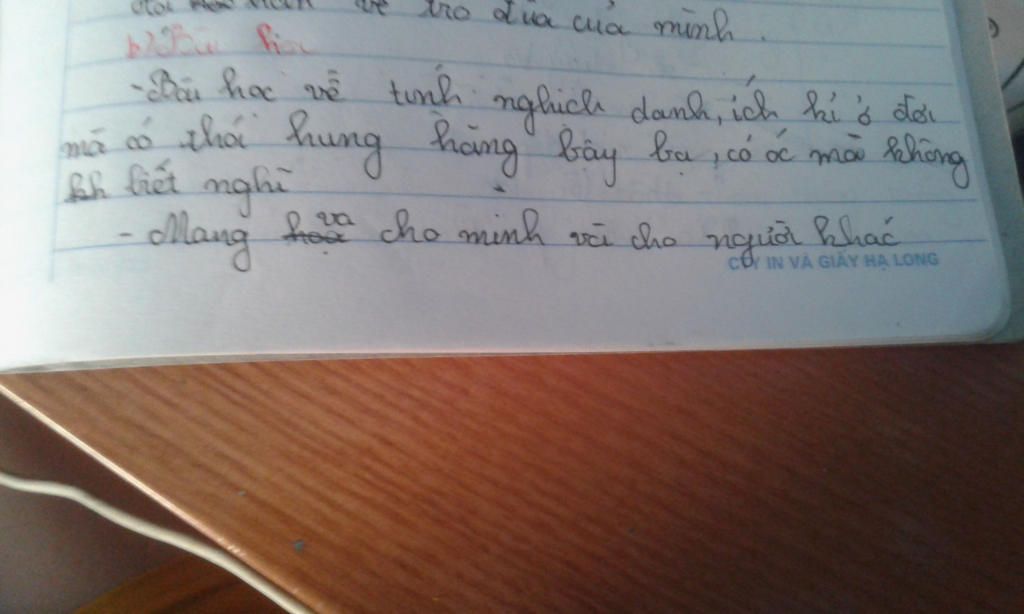 về trò đùa của mình.
b) Bài học
- Bài học về tính nghịch danh, ích kỉ ở đời
mà có thói hung hăng bậy bạ, có óc mà không
biết nghĩ
- Mang vạ cho mình và cho người khác
CTY IN VÀ GIẤY HẠ LONG